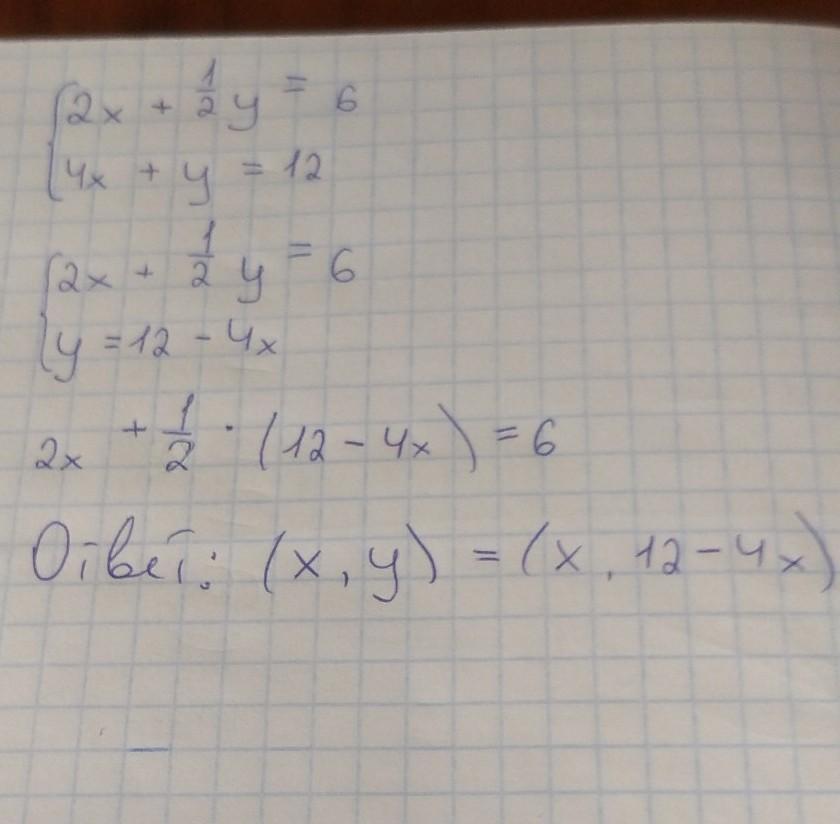 2x + 1/2 y = 6
4x + y = 12
2x + 1/2 y = 6
y = 12 - 4x
2x + 1/2 · (12 - 4x) = 6
Ответ: (x, y) = (x, 12 - 4x)